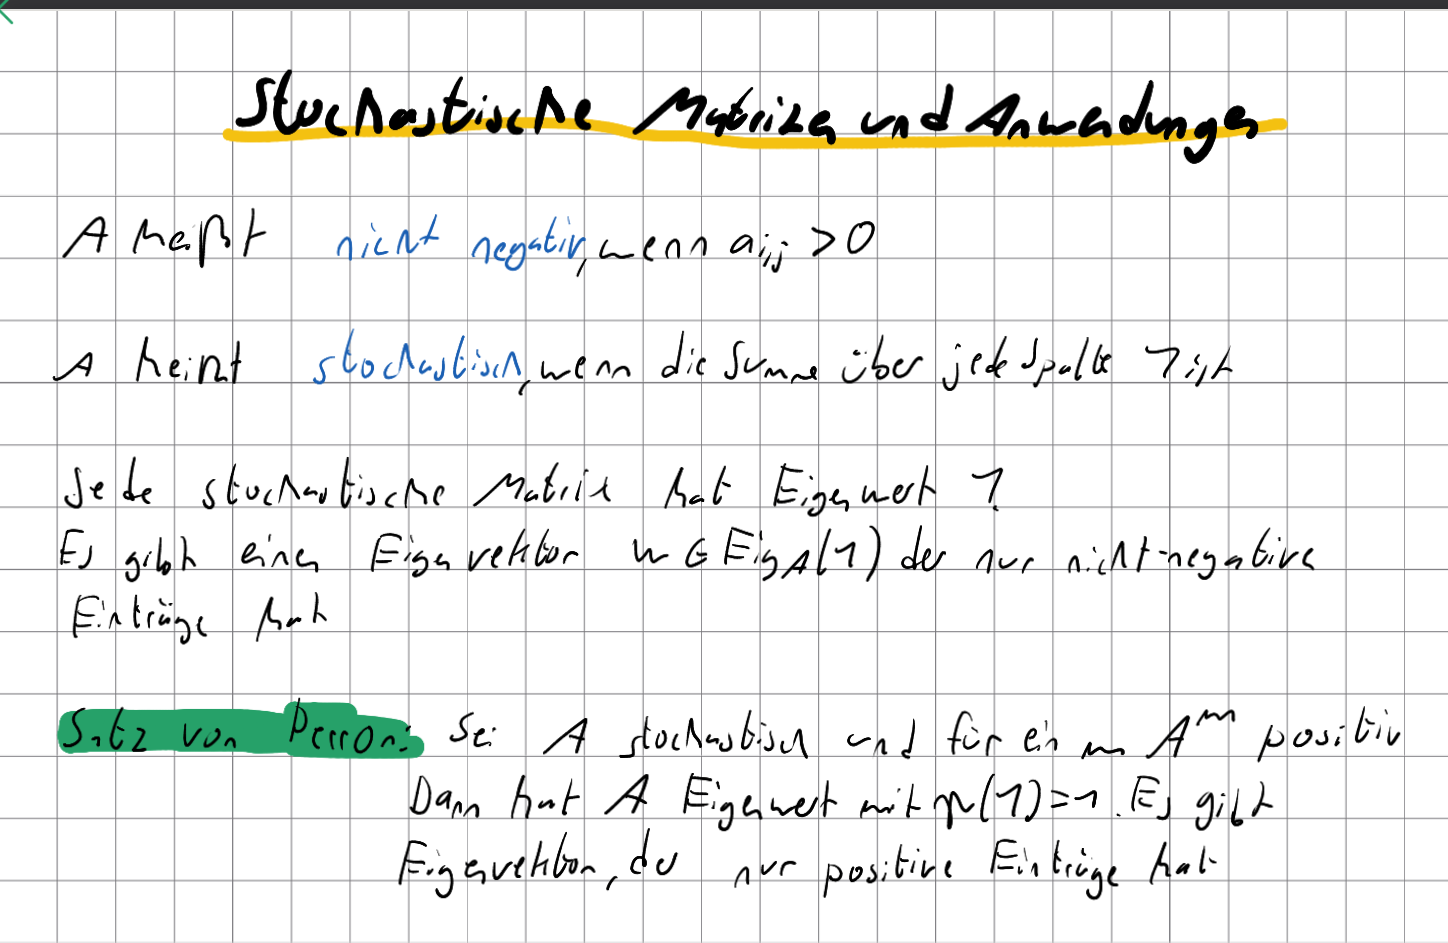 Stochastische Matrizen und Anwendungen
A heißt nicht negativ, wenn a_{i,j} > 0
A heißt stochastisch, wenn die Summe über jede Spalte 1 ist
Jede stochastische Matrix hat Eigenwert 1.
Es gibt einen Eigenvektor w ∈ Eig_A(1) der nur nicht-negative
Einträge hat
Satz von Perron: Sei A stochastisch und für ein m A^m positiv
Dann hat A Eigenwert mit (1)=1. Es gibt
Eigenvektor, der nur positive Einträge hat